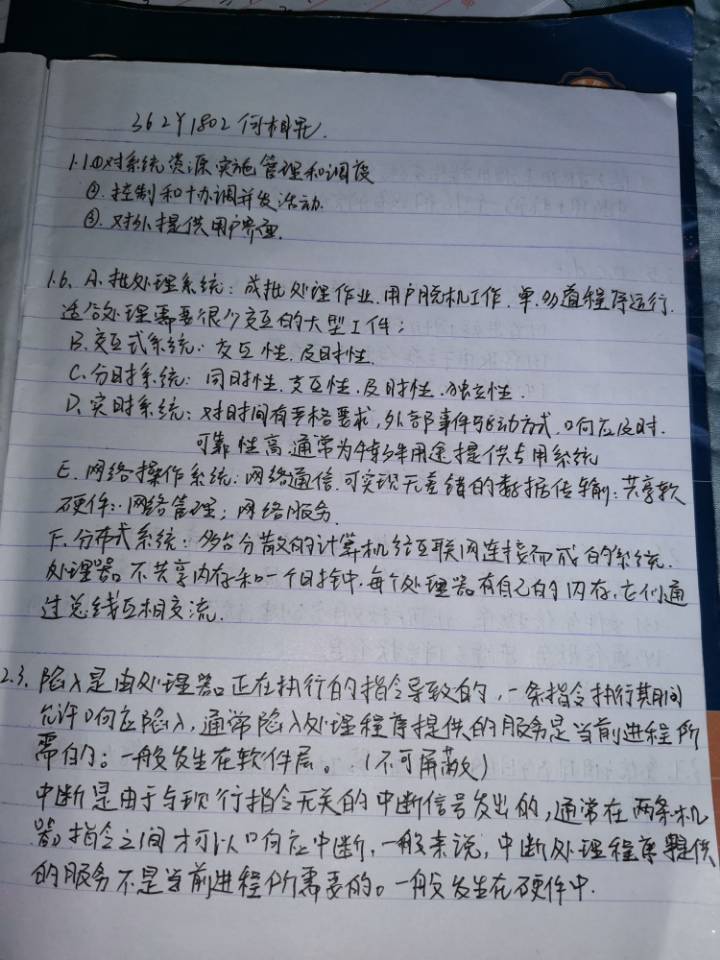 362Y1802 何相龙.
1.1 ①对系统资源实施管理和调度
②. 控制和协调并发活动.
③. 对外提供用户界面.
1.6. A. 批处理系统: 成批处理作业.用户脱机工作.单.多道程序运行.
适合处理需要很少交互的大型工作;
B.交互式系统: 交互性.及时性.
C.分时系统: 同时性.交互性.及时性.独立性.
D.实时系统: 对时间有严格要求,外部事件驱动方式.响应及时.
可靠性高.通常为特殊用途提供专用系统
E.网络操作系统: 网络通信.可实现无差错的数据传输; 共享软
硬件; 网络管理; 网络服务.
F.分布式系统: 多台分散的计算机经互联网连接而成的系统.
处理器不共享内存和一个时钟.每个处理器有自己的内存,它们通
过总线互相交流.
2.3. 陷入是由处理器正在执行的指令导致的,一条指令执行期间
允许响应陷入,通常陷入处理程序提供的服务是当前进程所
需的。一般发生在软件层。(不可屏蔽)
中断是由于与现行指令无关的中断信号发出的,通常在两条机
器指令之间才可以响应中断,一般来说,中断处理程序提供
的服务不是当前进程所需要的。一般发生在硬件中.